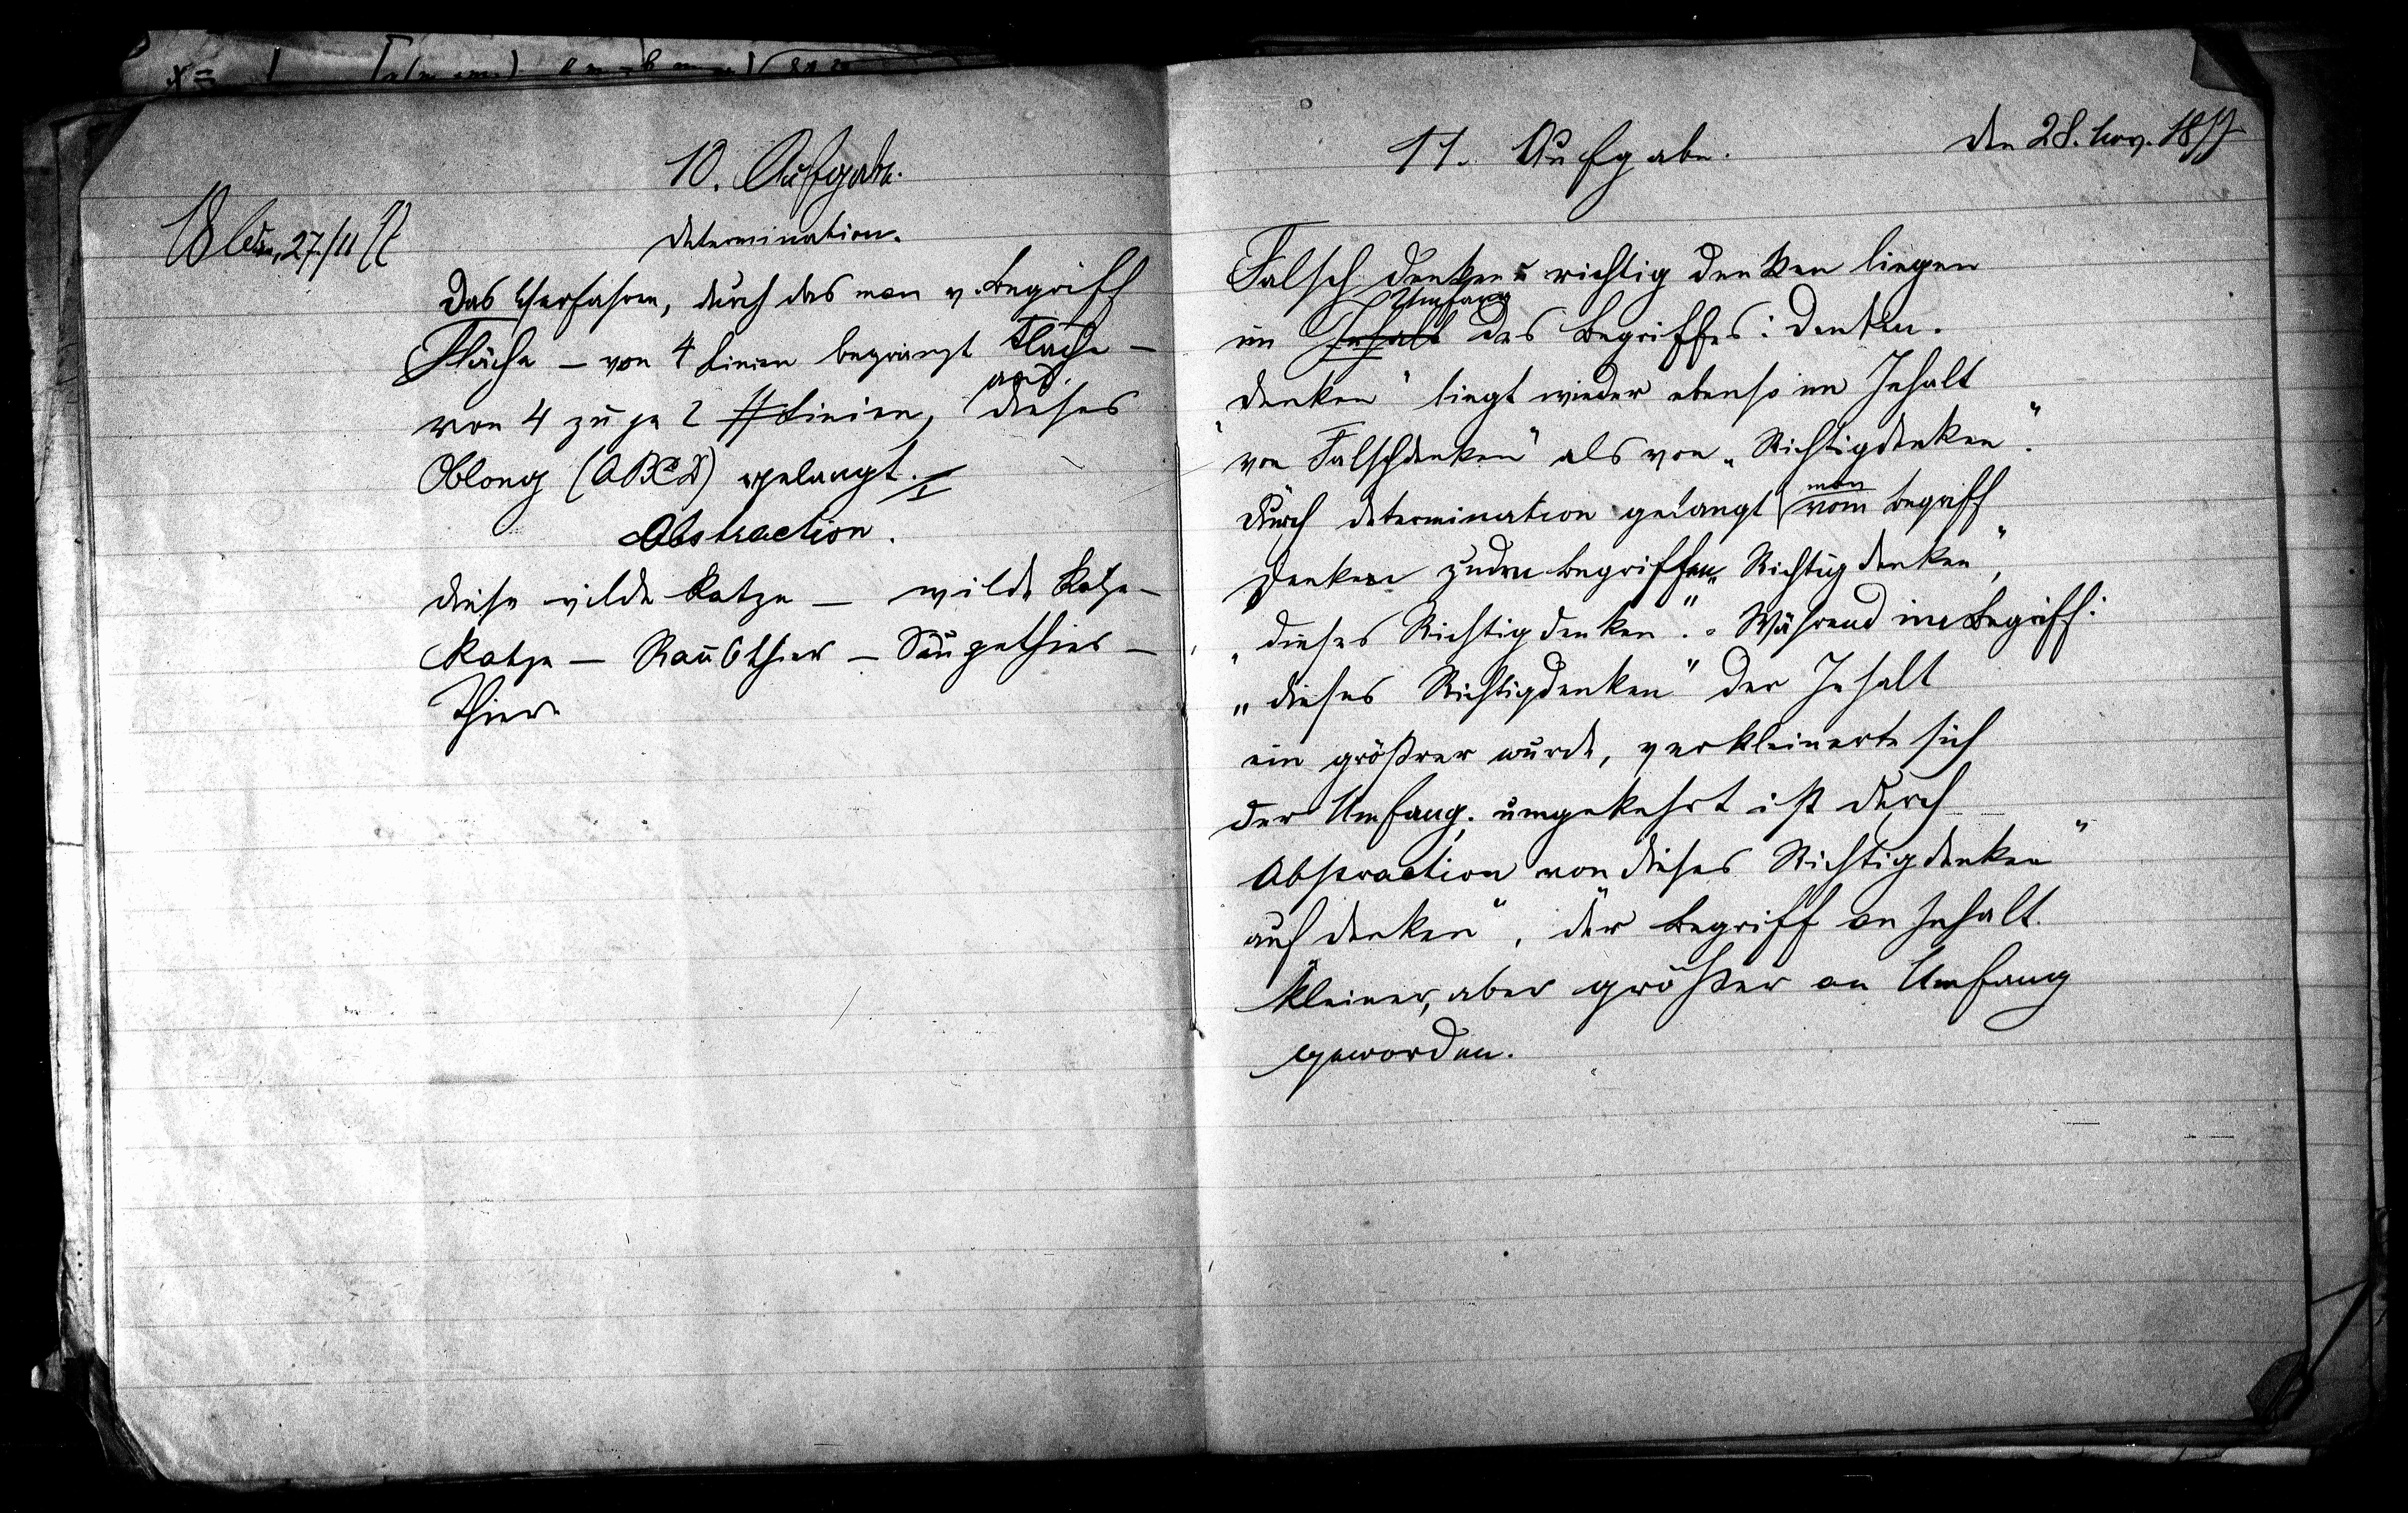 10. Aufgabe.
27./11
Determination.
Das Verfahren, durch das man v. Begriff
Fläche — von 4 Linien begränzt Fläche —
von 4 zu je 2 # Linien, dieses
Oblong (ABCD) gelangt.
Abstraction.
diese wilde Katze — wilde Katze —
Katze — Raubthier — Säugethier —
Thier
11. Aufgabe. den 28. Nov. 1877
Falsch denken u richtig denken liegen
Umfang
im Inhalt des Begriffes: Denken.
"Denken" liegt wieder ebenso im Inhalt
von Falschdenken" als von „Richtigdenken".
man
Durch Determination gelangt vom Begriff
Denken zu den Begriffen „Richtigdenken",
„dieses Richtigdenken". Während im Begriff:
„dieses Richtigdenken" der Inhalt
ein größrer wurde, verkleinerte sich
der Umfang; umgekehrt ist durch
Abstraction von dieses Richtigdenken"
auf denken", der Begriff an Inhalt
kleiner, aber größer an Umfang
geworden.